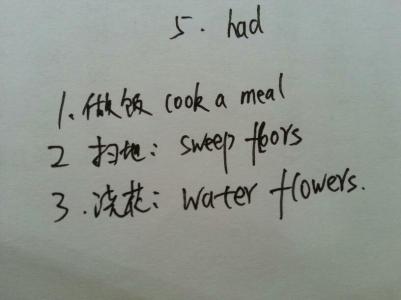 5. had
1. 做饭 cook a meal
2 扫地: sweep floors
3. 浇花: water flowers.